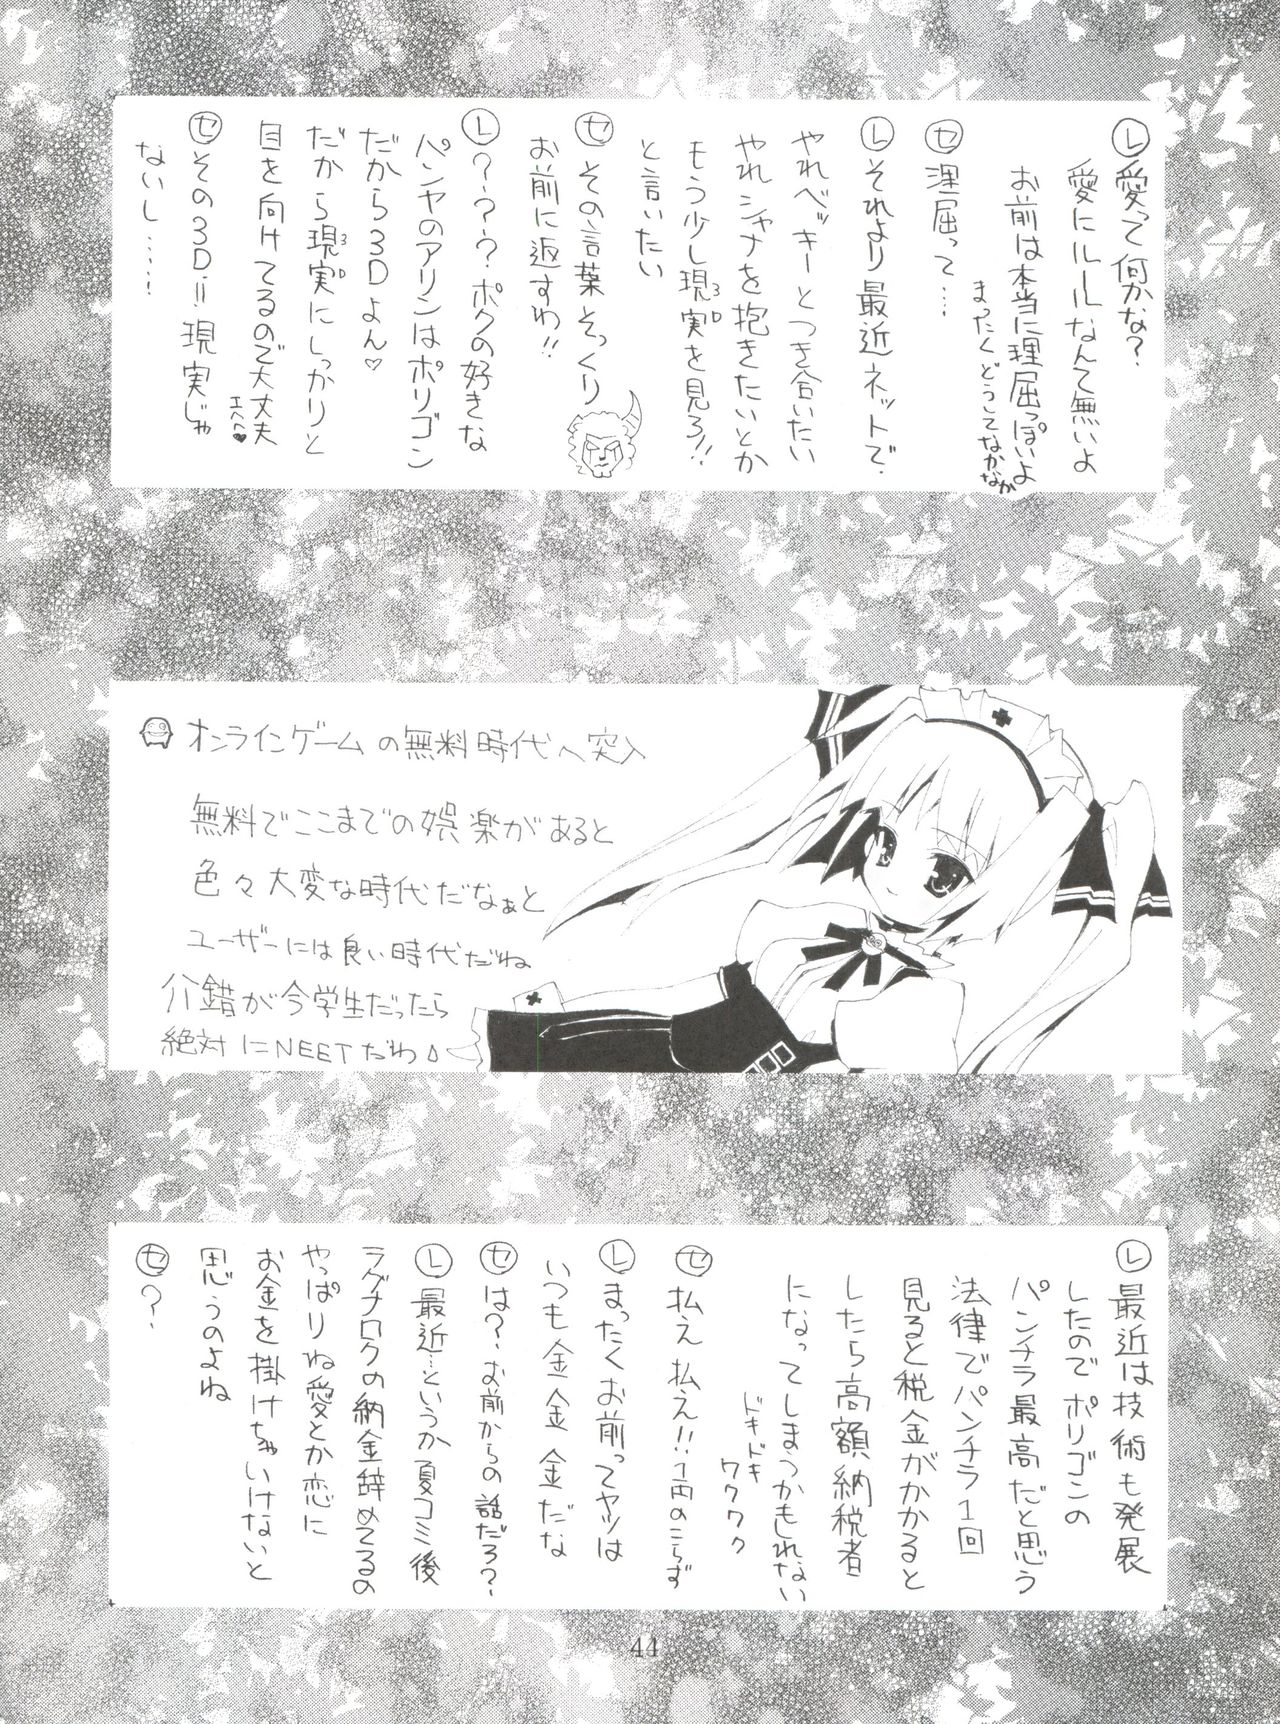 レ 愛って何かな?
愛にルールなんて無いよ
お前は本当に理屈っぽいよ
まったくどうしてなかなか
セ 理屈って…
レ それより最近ネットで
やれベッキーとつき合いたい
やれシャナを抱きたいとか
もう少し現実を見ろ!!
3D
と言いたい
セ その言葉そっくり
お前に返すわ!!
レ ???ボクの好きな
パンヤのアリンはポリゴン
だから3Dよん♡
だから現実にしっかりと
3D
目を向けてるので大丈夫
エヘヘ♥
セ その3D=現実じゃ
ないし……
オンラインゲームの無料時代へ突入
無料でここまでの娯楽があると
色々大変な時代だなぁと
ユーザーには良い時代だね
介錯が今学生だったら
絶対にNEETだわ
レ 最近は技術も発展
したのでポリゴンの
パンチラ最高だと思う
法律でパンチラ1回
見ると税金がかかると
したら高額納税者
になってしまうかもしれない
ドキドキ
ワクワク
セ 払え払え!!1円のこらず
レ まったくお前ってヤツは
いつも金金金だな
セ は?お前からの話だろ?
レ 最近…というか夏コミ後
ラグナロクの納金辞めてるの
やっぱりね愛とか恋に
お金を掛けちゃいけないと
思うのよね
セ ?
44